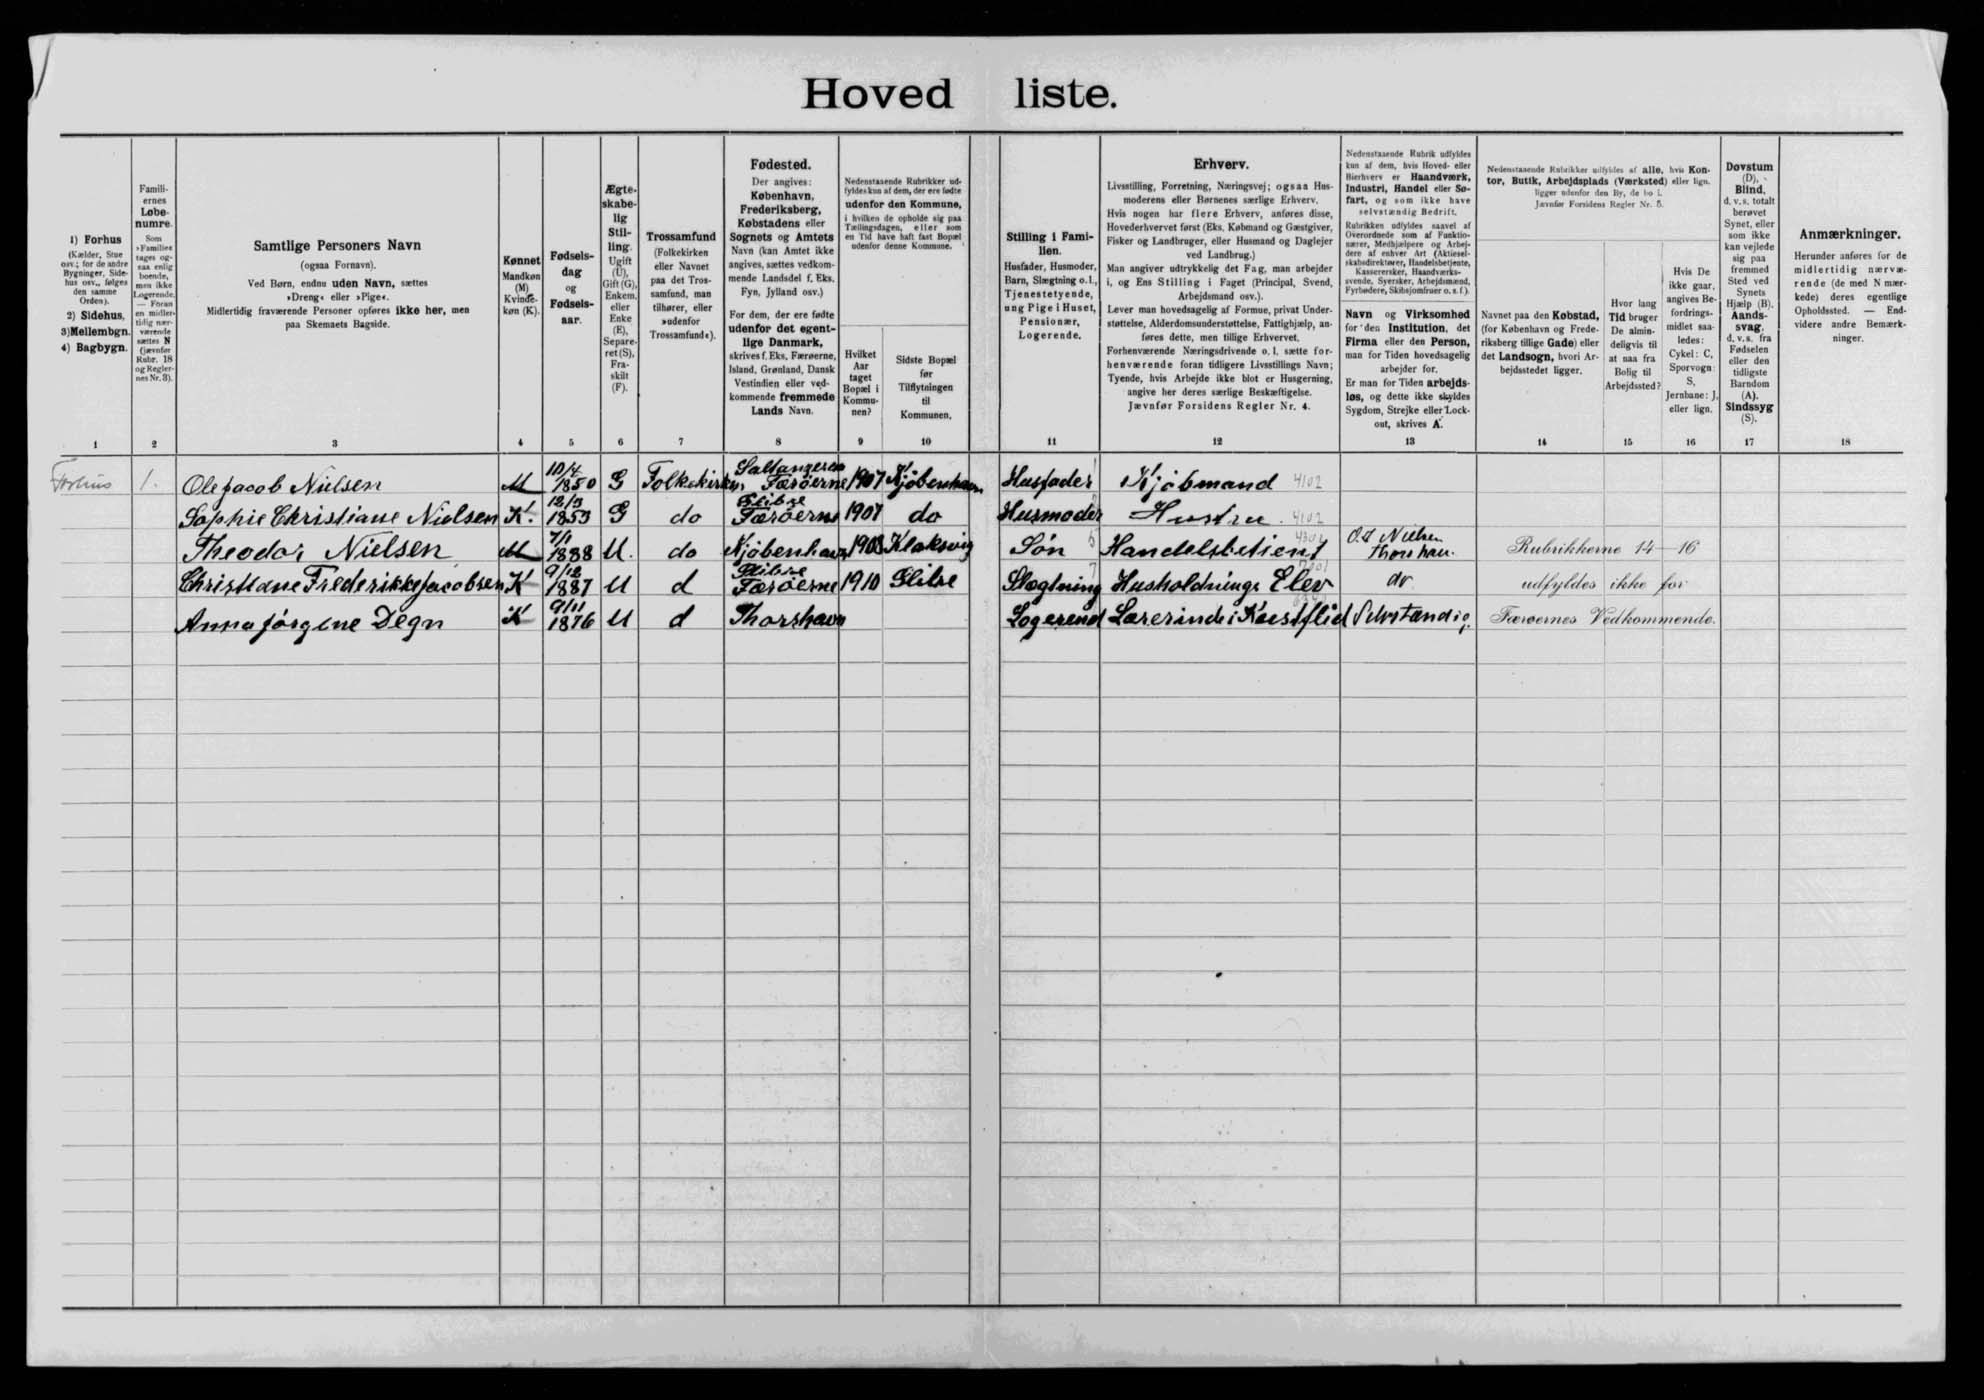 Hoved liste.
1) Forhus
(Kælder, Stue
osv.; for de andre
Bygninger, Side-
hus osv., følges
den samme
Orden).
2) Sidehus,
3) Mellembgn.
4) Bagbygn.
1
Famili-
ernes
Løbe-
numre.
Som
»Familie«
tages og-
saa enlig
boende,
men ikke
Logerende.
— Foran
en midler-
tidig nær-
værende
sættes N
(jævnfør
Rubr. 18
og Regler-
nes Nr. 3).
2
Samtlige Personers Navn
(ogsaa Fornavn).
Ved Børn, endnu uden Navn, sættes
»Dreng« eller »Pige«.
Midlertidig fraværende Personer opføres ikke her, men
paa Skemaets Bagside.
3
Kønnet
Mandkøn
(M)
Kvinde-
køn (K).
4
Fødsels-
dag
og
Fødsels-
aar.
5
Ægte-
skabe-
lig
Stil-
ling.
Ugift
(U),
Gift (G),
Enkem.
eller
Enke
(E),
Separe-
ret (S),
Fra-
skilt
(F).
6
Trossamfund
(Folkekirken
eller Navnet
paa det Tros-
samfund, man
tilhører, eller
»udenfor
Trossamfund«).
7
Fødested.
Der angives:
København,
Frederiksberg,
Købstadens eller
Sognets og Amtets
Navn (kan Amtet ikke
angives, sættes vedkom-
mende Landsdel f. Eks.
Fyn, Jylland osv.)
For dem, der ere fødte
udenfor det egent-
lige Danmark,
skrives f. Eks. Færøerne,
Island, Grønland, Dansk
Vestindien eller ved-
kommende fremmede
Lands Navn.
8
Nedenstaaende Rubrikker ud-
fyldes kun af dem, der ere fødte
udenfor den Kommune,
i hvilken de opholde sig paa
Tællingsdagen, eller som
en Tid have haft fast Bopæl
udenfor denne Kommune.
Hvilket
Aar
taget
Bopæl i
Kommu-
nen?
9
Sidste Bopæl
før
Tilflytningen
til
Kommunen.
10
Stilling i Fami-
lien.
Husfader, Husmoder,
Barn, Slægtning o. l.,
Tjenestetyende,
ung Pige i Huset,
Pensionær,
Logerende.
11
Erhverv.
Livsstilling, Forretning, Næringsvej; ogsaa Hus-
moderens eller Børnenes særlige Erhverv.
Hvis nogen har flere Erhverv, anføres disse,
Hovederhvervet først (Eks. Købmand og Gæstgiver,
Fisker og Landbruger, eller Husmand og Daglejer
ved Landbrug.)
Man angiver udtrykkelig det Fag, man arbejder
i, og Ens Stilling i Faget (Principal, Svend,
Arbejdsmand osv.).
Lever man hovedsagelig af Formue, privat Under-
støttelse, Alderdomsunderstøttelse, Fattighjælp, an-
føres dette, men tillige Erhvervet.
Forhenværende Næringsdrivende o. l. sætte for-
henværende foran tidligere Livsstillings Navn;
Tyende, hvis Arbejde ikke blot er Husgerning,
angive her deres særlige Beskæftigelse.
Jævnfør Forsidens Regler Nr. 4.
12
Nedenstaaende Rubrik udfyldes
kun af dem, hvis Hoved- eller
Bierhverv er Haandværk,
Industri, Handel eller Sø-
fart, og som ikke have
selvstændig Bedrift.
Rubrikken udfyldes saavel af
Overordnede som af Funktio-
nærer, Medhjælpere og Arbej-
dere af enhver Art (Aktiesel-
skabsdirektører, Handelsbetjente,
Kasserersker, Haandværks-
svende, Syersker, Arbejdsmænd,
Fyrbødere, Skibsjomfruer o. s. f.).
Navn og Virksomhed
for den Institution, det
Firma eller den Person,
man for Tiden hovedsagelig
arbejder for.
Er man for Tiden arbejds-
løs, og dette ikke skyldes
Sygdom, Strejke eller Lock-
out, skrives A.
13
Nedenstaaende Rubrikker udfyldes af alle, hvis Kon-
tor, Butik, Arbejdsplads (Værksted) eller lign.
ligger udenfor den By, de bo i.
Jævnfør Forsidens Regler Nr. 5.
Navnet paa den Købstad,
(for København og Frede-
riksberg tillige Gade) eller
det Landsogn, hvori Ar-
bejdsstedet ligger.
14
Hvor lang
Tid bruger
De almin-
deligvis til
at naa fra
Bolig til
Arbejdssted?
15
Hvis De
ikke gaar,
angives Be-
fordrings-
midlet saa-
ledes:
Cykel: C,
Sporvogn:
S,
Jernbane: J,
eller lign.
16
Døvstum
(D),
Blind,
d. v. s. totalt
berøvet
Synet, eller
som ikke
kan vejlede
sig paa
fremmed
Sted ved
Synets
Hjælp (B).
Aands-
svag,
d. v. s. fra
Fødselen
eller den
tidligste
Barndom
(A).
Sindssyg
(S).
17
Anmærkninger.
Herunder anføres for de
midlertidig nærvæ-
rende (de med N mær-
kede) deres egentlige
Opholdssted. — End-
videre andre Bemærk-
ninger.
18
Forhus 1. Ole Jacob Nielsen M 10/4 1850 G Folkekirken Færöerne 1907 Kjøbenhavn Husfader 1 Kjøbmand 4102
Sophie Christiane Nielsen K. 12/3 1853 G do Færöerne 1907 do Husmoder Hustru. 4102
Theodor Nielsen M 7/1 1888 U. do Kjøbenhavn 1908 Klaksvig Søn Handelsbetient O. J Nielsen Thorshavn. Rubrikkerne 14—16
Christiane Frederikke Jacobsen K 9/12 1887 U d Glibre Færöerne 1910 Glibre Slægtning Husholdnings Elev do udfyldes ikke for
Anna Jörgine Degn K 9/11 1876 U d Thorshavn Logerend Lærerinde i Kunstflid Selvstændig. Færøernes Vedkommende.